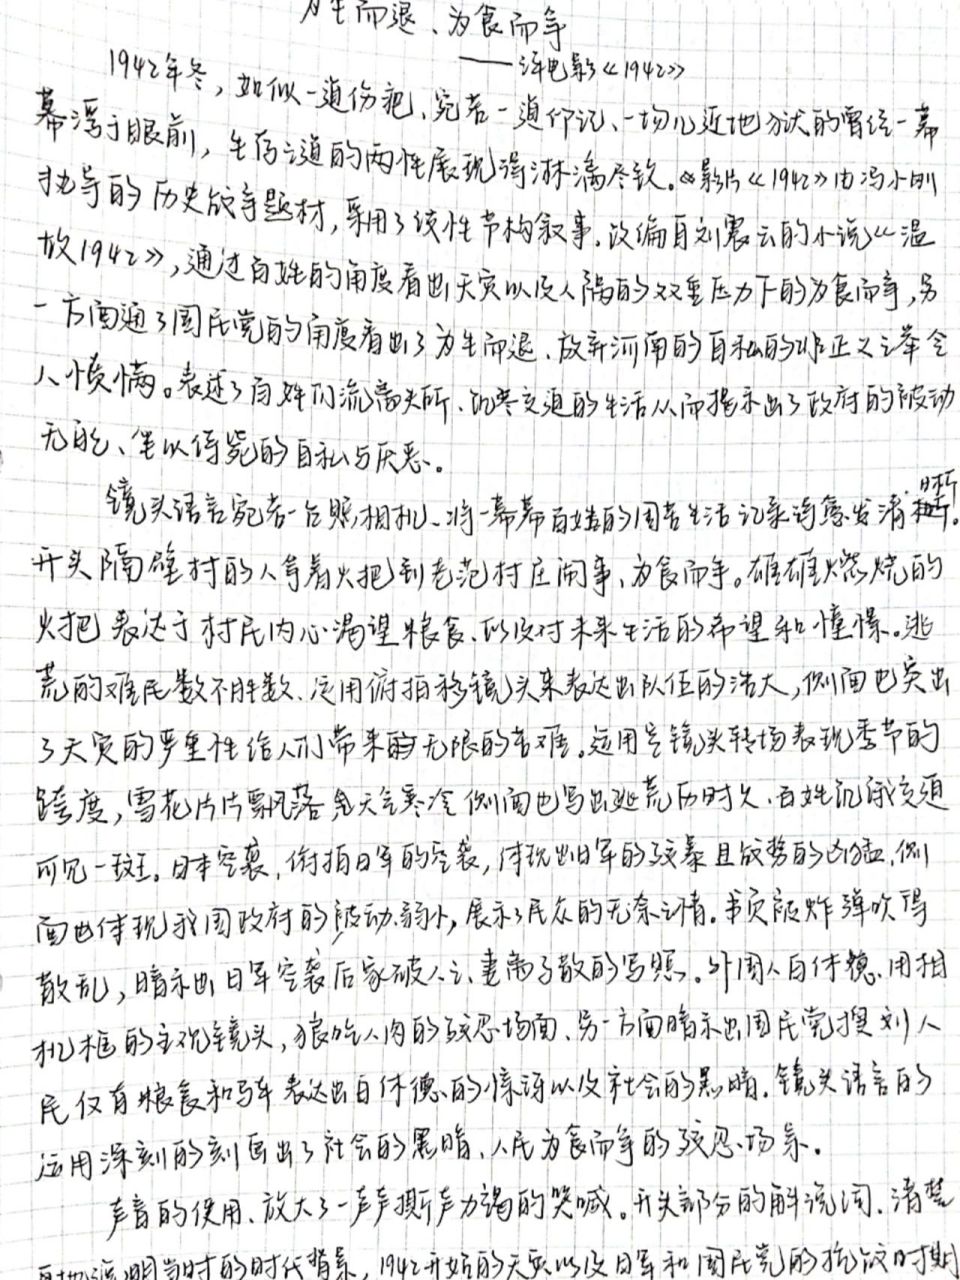 为生而退、为食而争
——评电影《1942》
1942年冬,如似一道伤疤、宛若一道印记、一场几近地狱的曾经一幕
幕浮于眼前,生存之道的两性展现得淋漓尽致。影片《1942》由冯小刚
执导的历史战争题材,采用了线性节构叙事,改编自刘震云的小说《温
故1942》,通过百姓的角度看出天灾以及人祸的双重压力下的为食而争,另
一方面通了国民党的角度看出了为生而退、放弃河南的自私的非正义之举令
人愤懑。表述了百姓们流离失所、饥寒交迫的生活从而揭示出了政府的被动
无能、坐以待毙的自私与厌恶。
镜头语言宛若一台照相机、将一幕幕百姓的困苦生活记录得愈发清晰。
开头隔壁村的人举着火把到老范村庄闹事、为食而争。雄雄燃烧的
火把表达于村民内心渴望粮食、以及对未来生活的希望和憧憬。逃
荒的难民数不胜数、运用俯拍移镜头来表达出队伍的浩大,侧面也突出
了天灾的严重性给人们带来无限的苦难。运用空镜头转场表现季节的
跨度,雪花片片飘落 天气寒冷侧面也写出逃荒历时久、百姓饥寒交迫
可见一斑。日本空袭,俯拍日军的空袭,体现出日军的残暴且战势的凶猛,侧
面也体现我国政府的被动、弱小,展示了民众的无奈之情。书页被炸弹吹得
散乱,暗示出日军空袭后家破人亡、妻离子散的写照。外国人白休德、用相
机框的主观镜头,狼吃人肉的残忍场面、另一方面暗示出国民党搜刮人
民仅有粮食和马车表达出白休德的惊讶以及社会的黑暗。镜头语言的
运用深刻的刻画出了社会的黑暗、人民为食而争的残忍场景。
声音的使用、放大了一声声撕声力竭的哭喊。开头部分的解说词、清楚
明当时的时代背景,1942开始的天灾以及日军和国民党的抗战时期